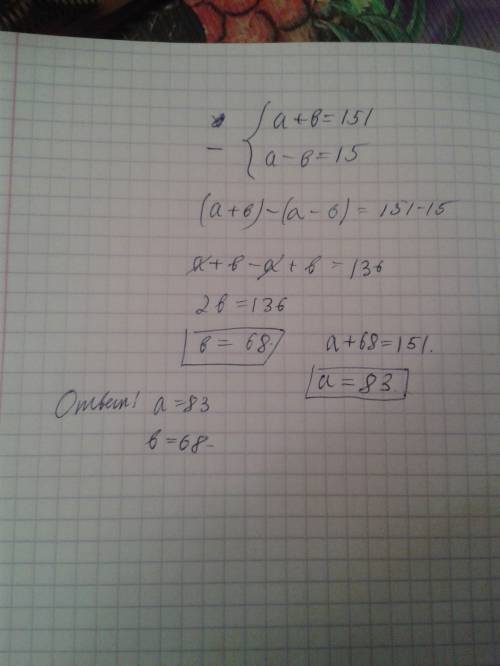 a+в=151
- a-в=15
(a+в)-(a-в)=151-15
a+в-a+в=136
2в=136
в=68.
a+68=151.
a=83.
Ответ! a=83
в=68.